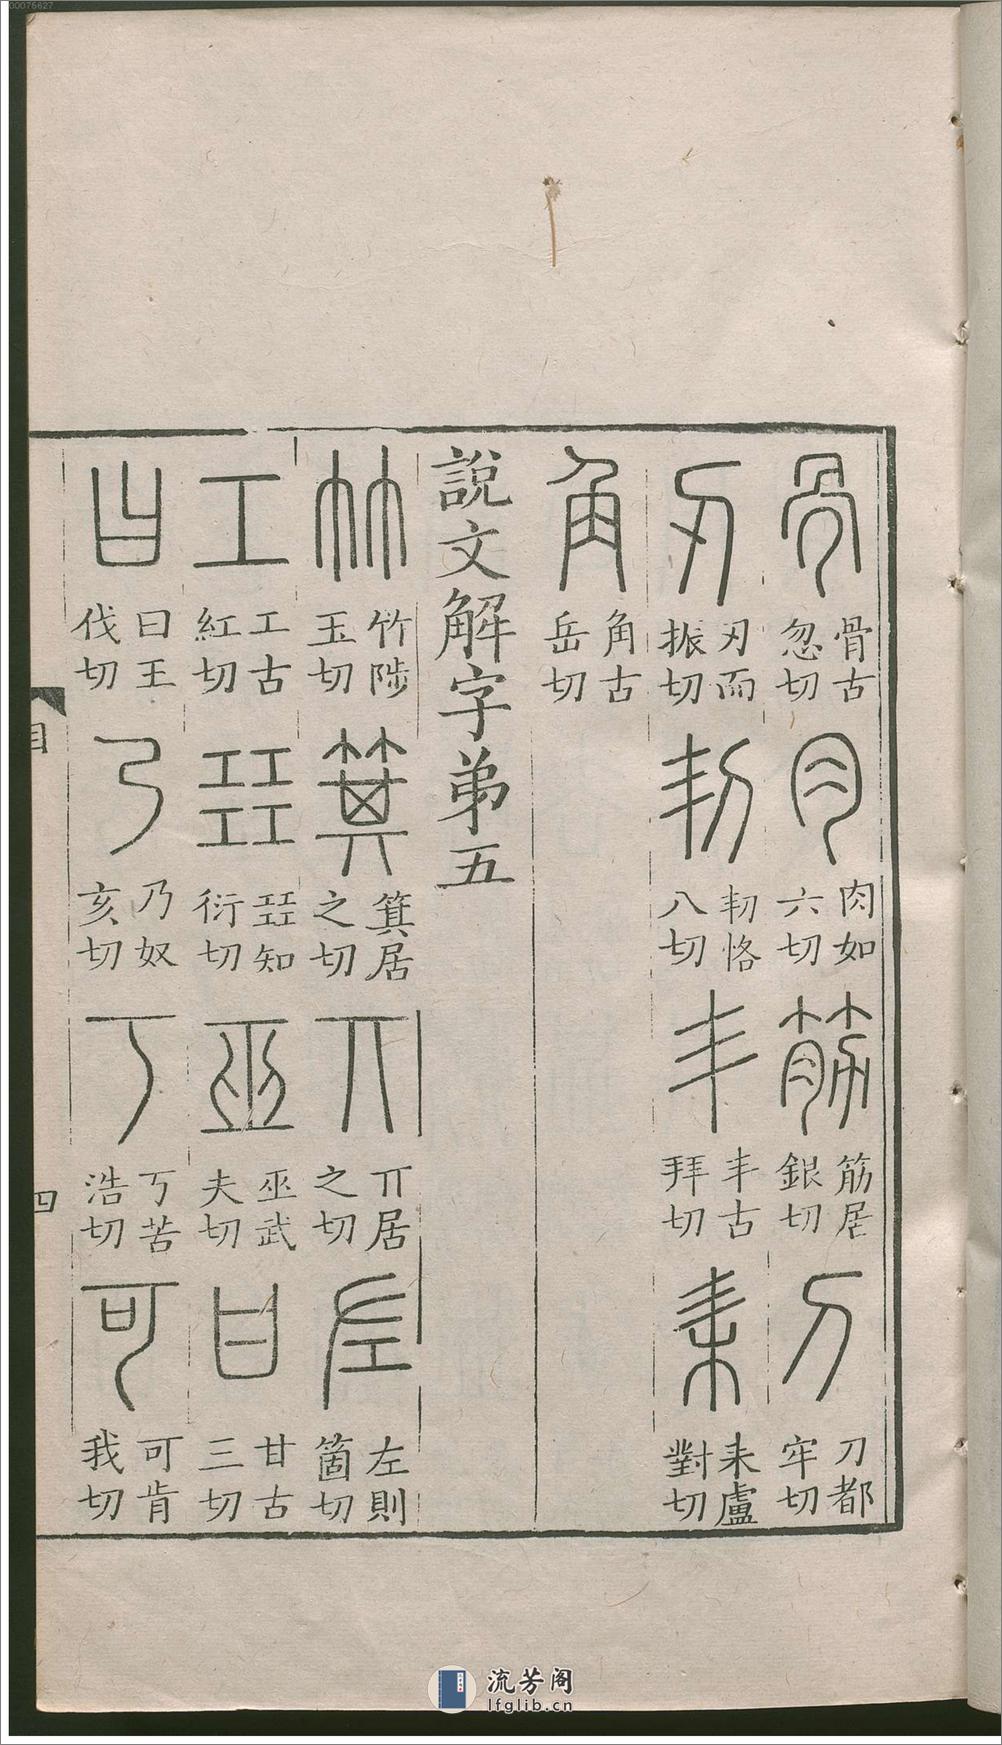 00075627
骨 骨古忽切 肉 肉如六切 筋 筋居銀切 刀 刀都牢切
刃 刃而振切 㓞 㓞恪八切 丯 丯古拜切 耒 耒盧對切
角 角古岳切
說文解字弟五
竹 竹陟玉切 箕 箕居之切 丌 丌居之切 左 左則箇切
工 工古紅切 㠭 㠭知衍切 巫 巫武夫切 甘 甘古三切
曰 曰王伐切 乃 乃奴亥切 丂 丂苦浩切 可 可肯我切
目 四
流芳阁
lfglib.cn